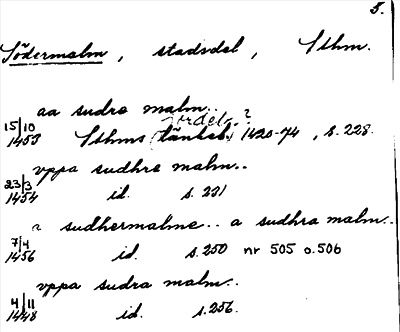 5.
Södermalm, stadsdel, Sthm.
aa sudre malm..
jordeb. ?
15/10 1453 Sthms (tänkeb) 1420-74, s. 228.
vppa sudhre malm..
23/3 1454 id. s. 231
a sudhermalme.. a sudhra malm..
7/4 1456 id. s. 250 nr 505 o. 506
vppa sudra malm..
4/11 1448 id. s. 256.